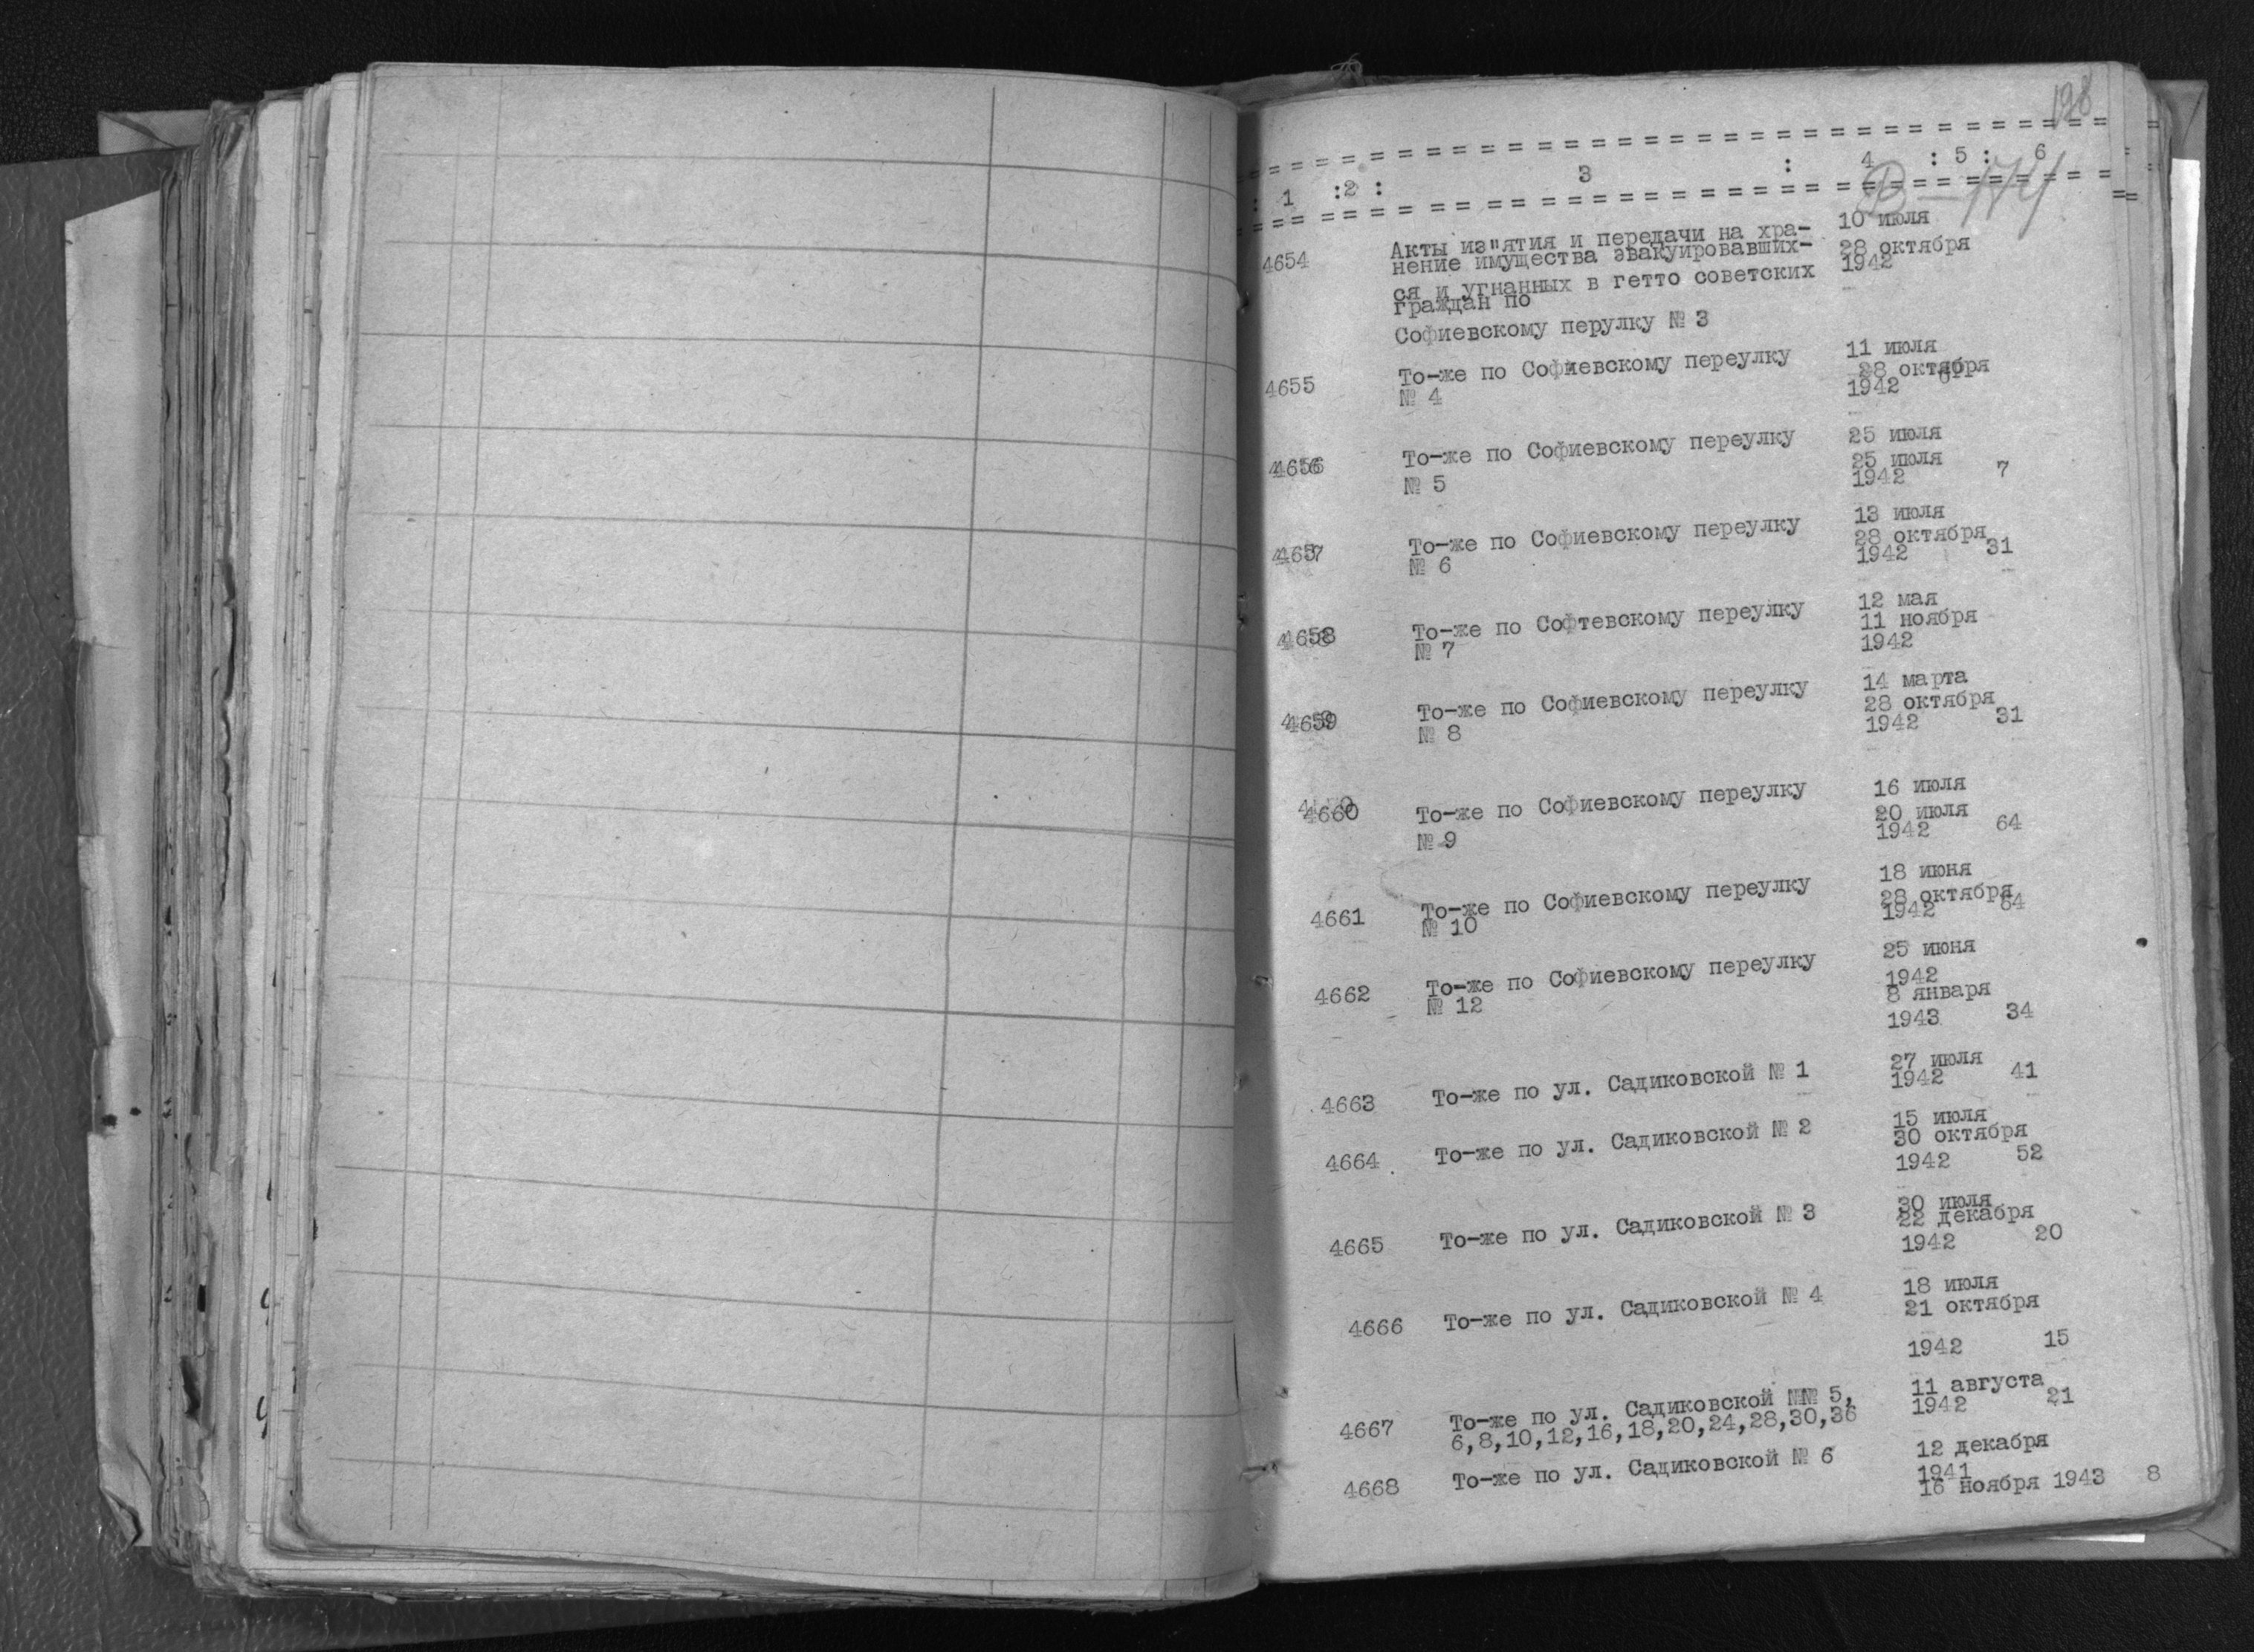 198
: 1 :2 : 3 : 4 : 5 : 6 :
Р-174
4654 Акты из"ятия и передачи на хра- 10 июля
нение имущества эвакуировавших- 28 октября
ся и угнанных в гетто советских 1942
граждан по
Софиевскому перулку № 3
4655 То-же по Софиевскому переулку 11 июля
№ 4 28 октября
1942
4656 То-же по Софиевскому переулку 25 июля
№ 5 25 июля
1942 7
4657 То-же по Софиевскому переулку 13 июля
№ 6 28 октября
1942 31
4658 То-же по Софтевскому переулку 12 мая
№ 7 11 ноября
1942
4659 То-же по Софиевскому переулку 14 марта
№ 8 28 октября
1942 31
4660 То-же по Софиевскому переулку 16 июля
№ 9 20 июля
1942 64
4661 То-же по Софиевскому переулку 18 июня
№ 10 28 октября
1942 64
4662 То-же по Софиевскому переулку 25 июня
№ 12 1942
8 января
1943 34
4663 То-же по ул. Садиковской № 1 27 июля
1942 41
4664 То-же по ул. Садиковской № 2 15 июля
30 октября
1942 52
4665 То-же по ул. Садиковской № 3 30 июля
22 декабря
1942 20
4666 То-же по ул. Садиковской № 4 18 июля
21 октября
1942 15
4667 То-же по ул. Садиковской №№ 5, 11 августа
6,8,10,12,16,18,20,24,28,30,36 1942 21
4668 То-же по ул. Садиковской № 6 12 декабря
1941
16 ноября 1943 8